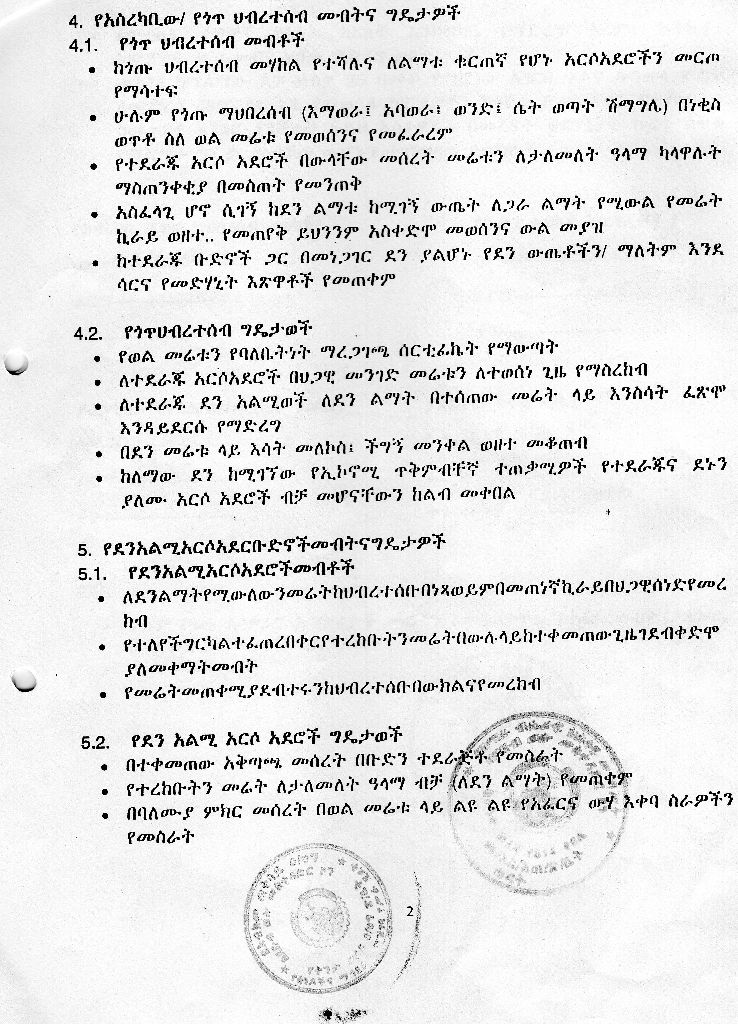 4. የአስረካቢው/ የጎጥ ህብረተሰብ መብትና ግዴታዎች
4.1. የጎጥ ህብረተሰብ መብቶች
• ከጎጡ ህብረተሰብ መሃከል የተሻሉና ለልማቱ ቁርጠኛ የሆኑ አርሶአደሮችን መርጦ
የማሳተፍ
• ሁሉም የጎጡ ማህበረሰብ (እማወራ፤ አባወራ፤ ወንድ፤ ሴት ወጣት ሽማግሌ) በነቂስ
ወጥቶ ስለ ወል መሬቱ የመወሰንና የመፈራረም
• የተደራጁ አርሶ አደሮች በውላቸው መሰረት መሬቱን ለታለመለት ዓላማ ካላዋሉት
ማስጠንቀቂያ በመስጠት የመንጠቅ
• አስፈላጊ ሆኖ ሲገኝ ከደን ልማቱ ከሚገኝ ውጤት ለጋራ ልማት የሚውል የመሬት
ኪራይ ወዘተ.. የመጠየቅ ይህንንም አስቀድሞ መወሰንና ውል መያዝ
• ከተደራጁ ቡድኖች ጋር በመነጋገር ደን ያልሆኑ የደን ውጤቶችን/ ማለትም እንደ
ሳርና የመድሃኒት እጽዋቶች የመጠቀም
4.2. የጎጥህብረተሰብ ግዴታወች
• የወል መሬቱን የባለቤትነት ማረጋገጫ ሰርቲፊኬት የማውጣት
• ለተደራጁ አርሶአደሮች በህጋዊ መንገድ መሬቱን ለተወሰነ ጊዜ የማስረከብ
• ለተደራጁ ደን አልሚወች ለደን ልማት በተሰጠው መሬት ላይ እንስሳት ፈጽሞ
እንዳይደርሱ የማድረግ
• በደን መሬቱ ላይ እሳት መለኮስ፤ ችግኝ መንቀል ወዘተ መቆጠብ
• ከለማው ደን ከሚገኘው የኢኮኖሚ ጥቅምብቸኛ ተጠቃሚዎች የተደራጁና ደኑን
ያለሙ አርሶ አደሮች ብቻ መሆናቸውን ከልብ መቀበል
5. የደንአልሚአርሶአደርቡድኖችመብትናግዴታዎች
5.1. የደንአልሚአርሶአደሮችመብቶች
• ለደንልማትየሚውለውንመሬትከህብረተሰቡበነጻወይምበመጠነኛኪራይበህጋዊሰነድየመረ
ከብ
• የተለየችግርካልተፈጠረበቀርየተረከቡትንመሬትበውሉላይከተቀመጠውጊዜገደብቀድሞ
ያለመቀማትመብት
• የመሬትመጠቀሚያደብተሩንከህብረተሰቡበውክልናየመረከብ
5.2. የደን አልሚ አርሶ አደሮች ግዴታወች
• በተቀመጠው አቅጣጫ መሰረት በቡድን ተደራጅቶ የመስራት
• የተረከቡትን መሬት ለታለመለት ዓላማ ብቻ (ለደን ልማት) የመጠቀም
• በባለሙያ ምክር መሰረት በወል መሬቱ ላይ ልዩ ልዩ የአፈርና ውሃ እቀባ ስራዎችን
የመስራት
2